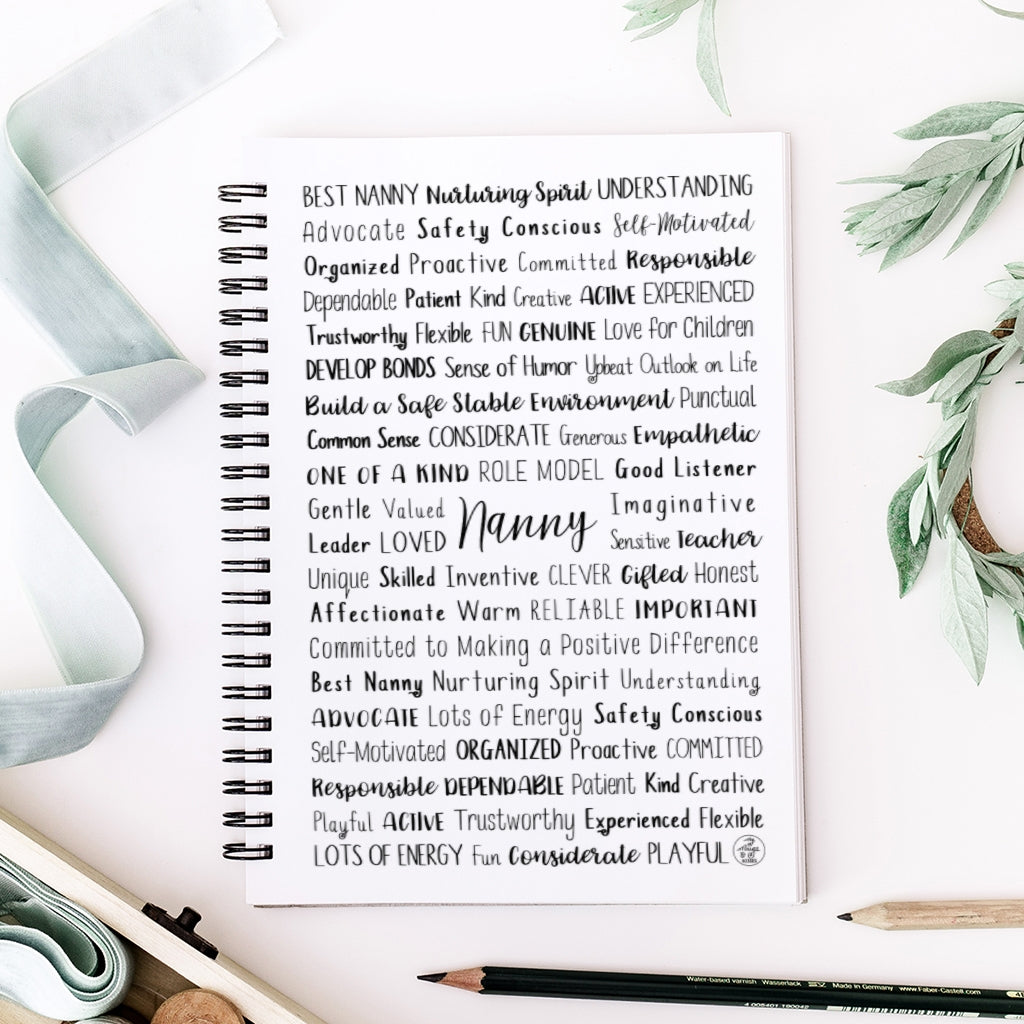 BEST NANNY Nurturing Spirit UNDERSTANDING
Advocate Safety Conscious Self-Motivated
Organized Proactive Committed Responsible
Dependable Patient Kind Creative ACTIVE EXPERIENCED
Trustworthy Flexible FUN GENUINE Love for Children
DEVELOP BONDS Sense of Humor Upbeat Outlook on Life
Build a Safe Stable Environment Punctual
Common Sense CONSIDERATE Generous Empathetic
ONE OF A KIND ROLE MODEL Good Listener
Gentle Valued
Leader LOVED
Nanny
Imaginative
Sensitive Teacher
Unique Skilled Inventive CLEVER Gifted Honest
Affectionate Warm RELIABLE IMPORTANT
Committed to Making a Positive Difference
Best Nanny Nurturing Spirit Understanding
ADVOCATE Lots of Energy Safety Conscious
Self-Motivated ORGANIZED Proactive COMMITTED
Responsible DEPENDABLE Patient Kind Creative
Playful ACTIVE Trustworthy Experienced Flexible
LOTS OF ENERGY Fun Considerate PLAYFUL
Water-based varnish Wasserlack Made in Germany www.Faber-Castell.com
4 005401 190042